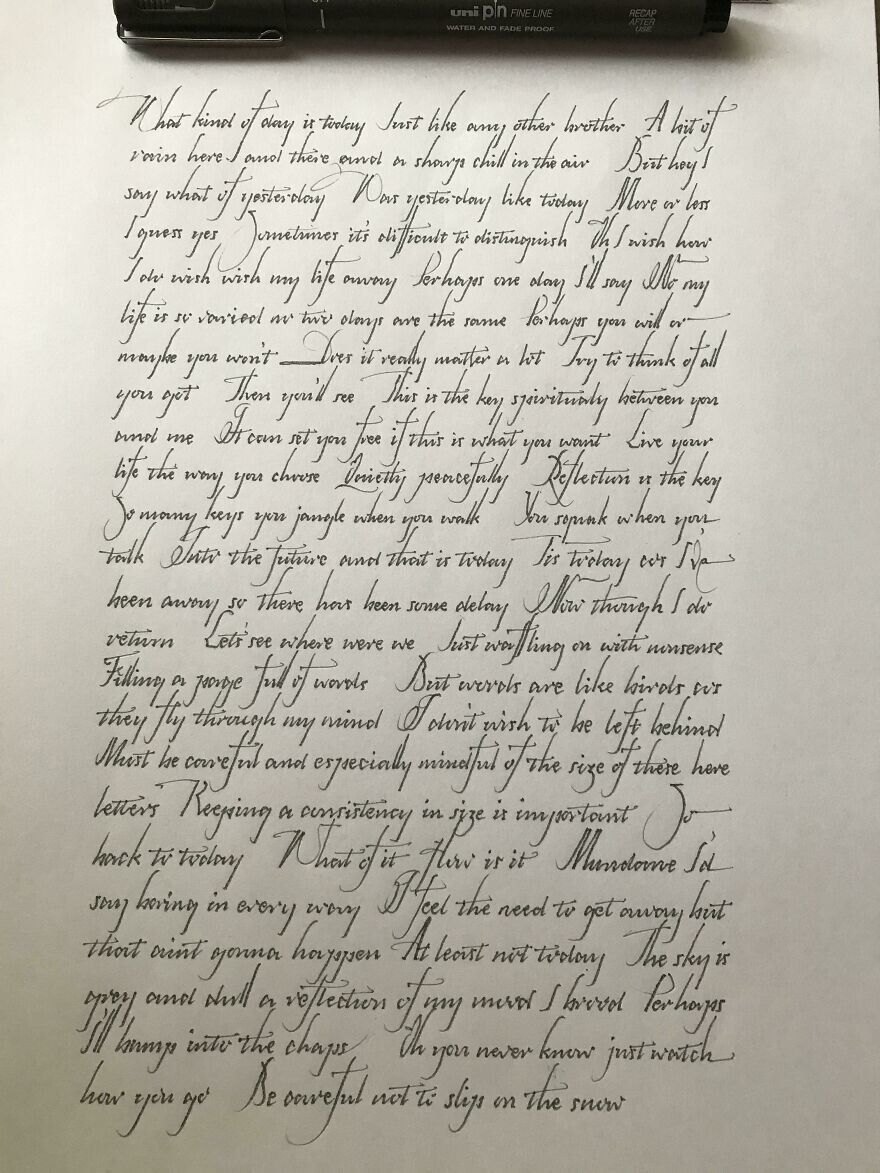 uni pin FINE LINE
WATER AND FADE PROOF
RECAP
AFTER
USE
What kind of day is today Just like any other brother A bit of
rain here I and there and a sharp chill in the air But hey I
say what of yesterday Was yesterday like today More or less
I guess yes Sometimes it's difficult to distinguish Oh I wish how
I do wish wish my life away Perhaps one day I'll say No my
life is so varied no two days are the same Perhaps you will or
maybe you won't Does it really matter a lot Try to think of all
you got Then you'll see This is the key spiritualy between you
and me It can set you free if this is what you want Live your
life the way you choose Quietly peacefully Reflection is the key
So many keys you jangle when you walk You squak when you
talk Into the future and that is today Tis today cos I've
been away so there has been some delay Now though I do
return Lets see where were we Just waffling on with nonsense
Filling a page full of words But words are like birds cos
they fly through my mind I don't wish to be left behind
Must be careful and especially mindful of the size of these here
letters Keeping a consistency in size is important So
back to today What of it How is it Mundane I'd
say boring in every way I feel the need to get away but
that aint gonna happen At least not today The sky is
grey and dull a reflection of my mood I brood Perhaps
I'll bump into the chaps Oh you never know just watch
how you go Be careful not to slip on the snow